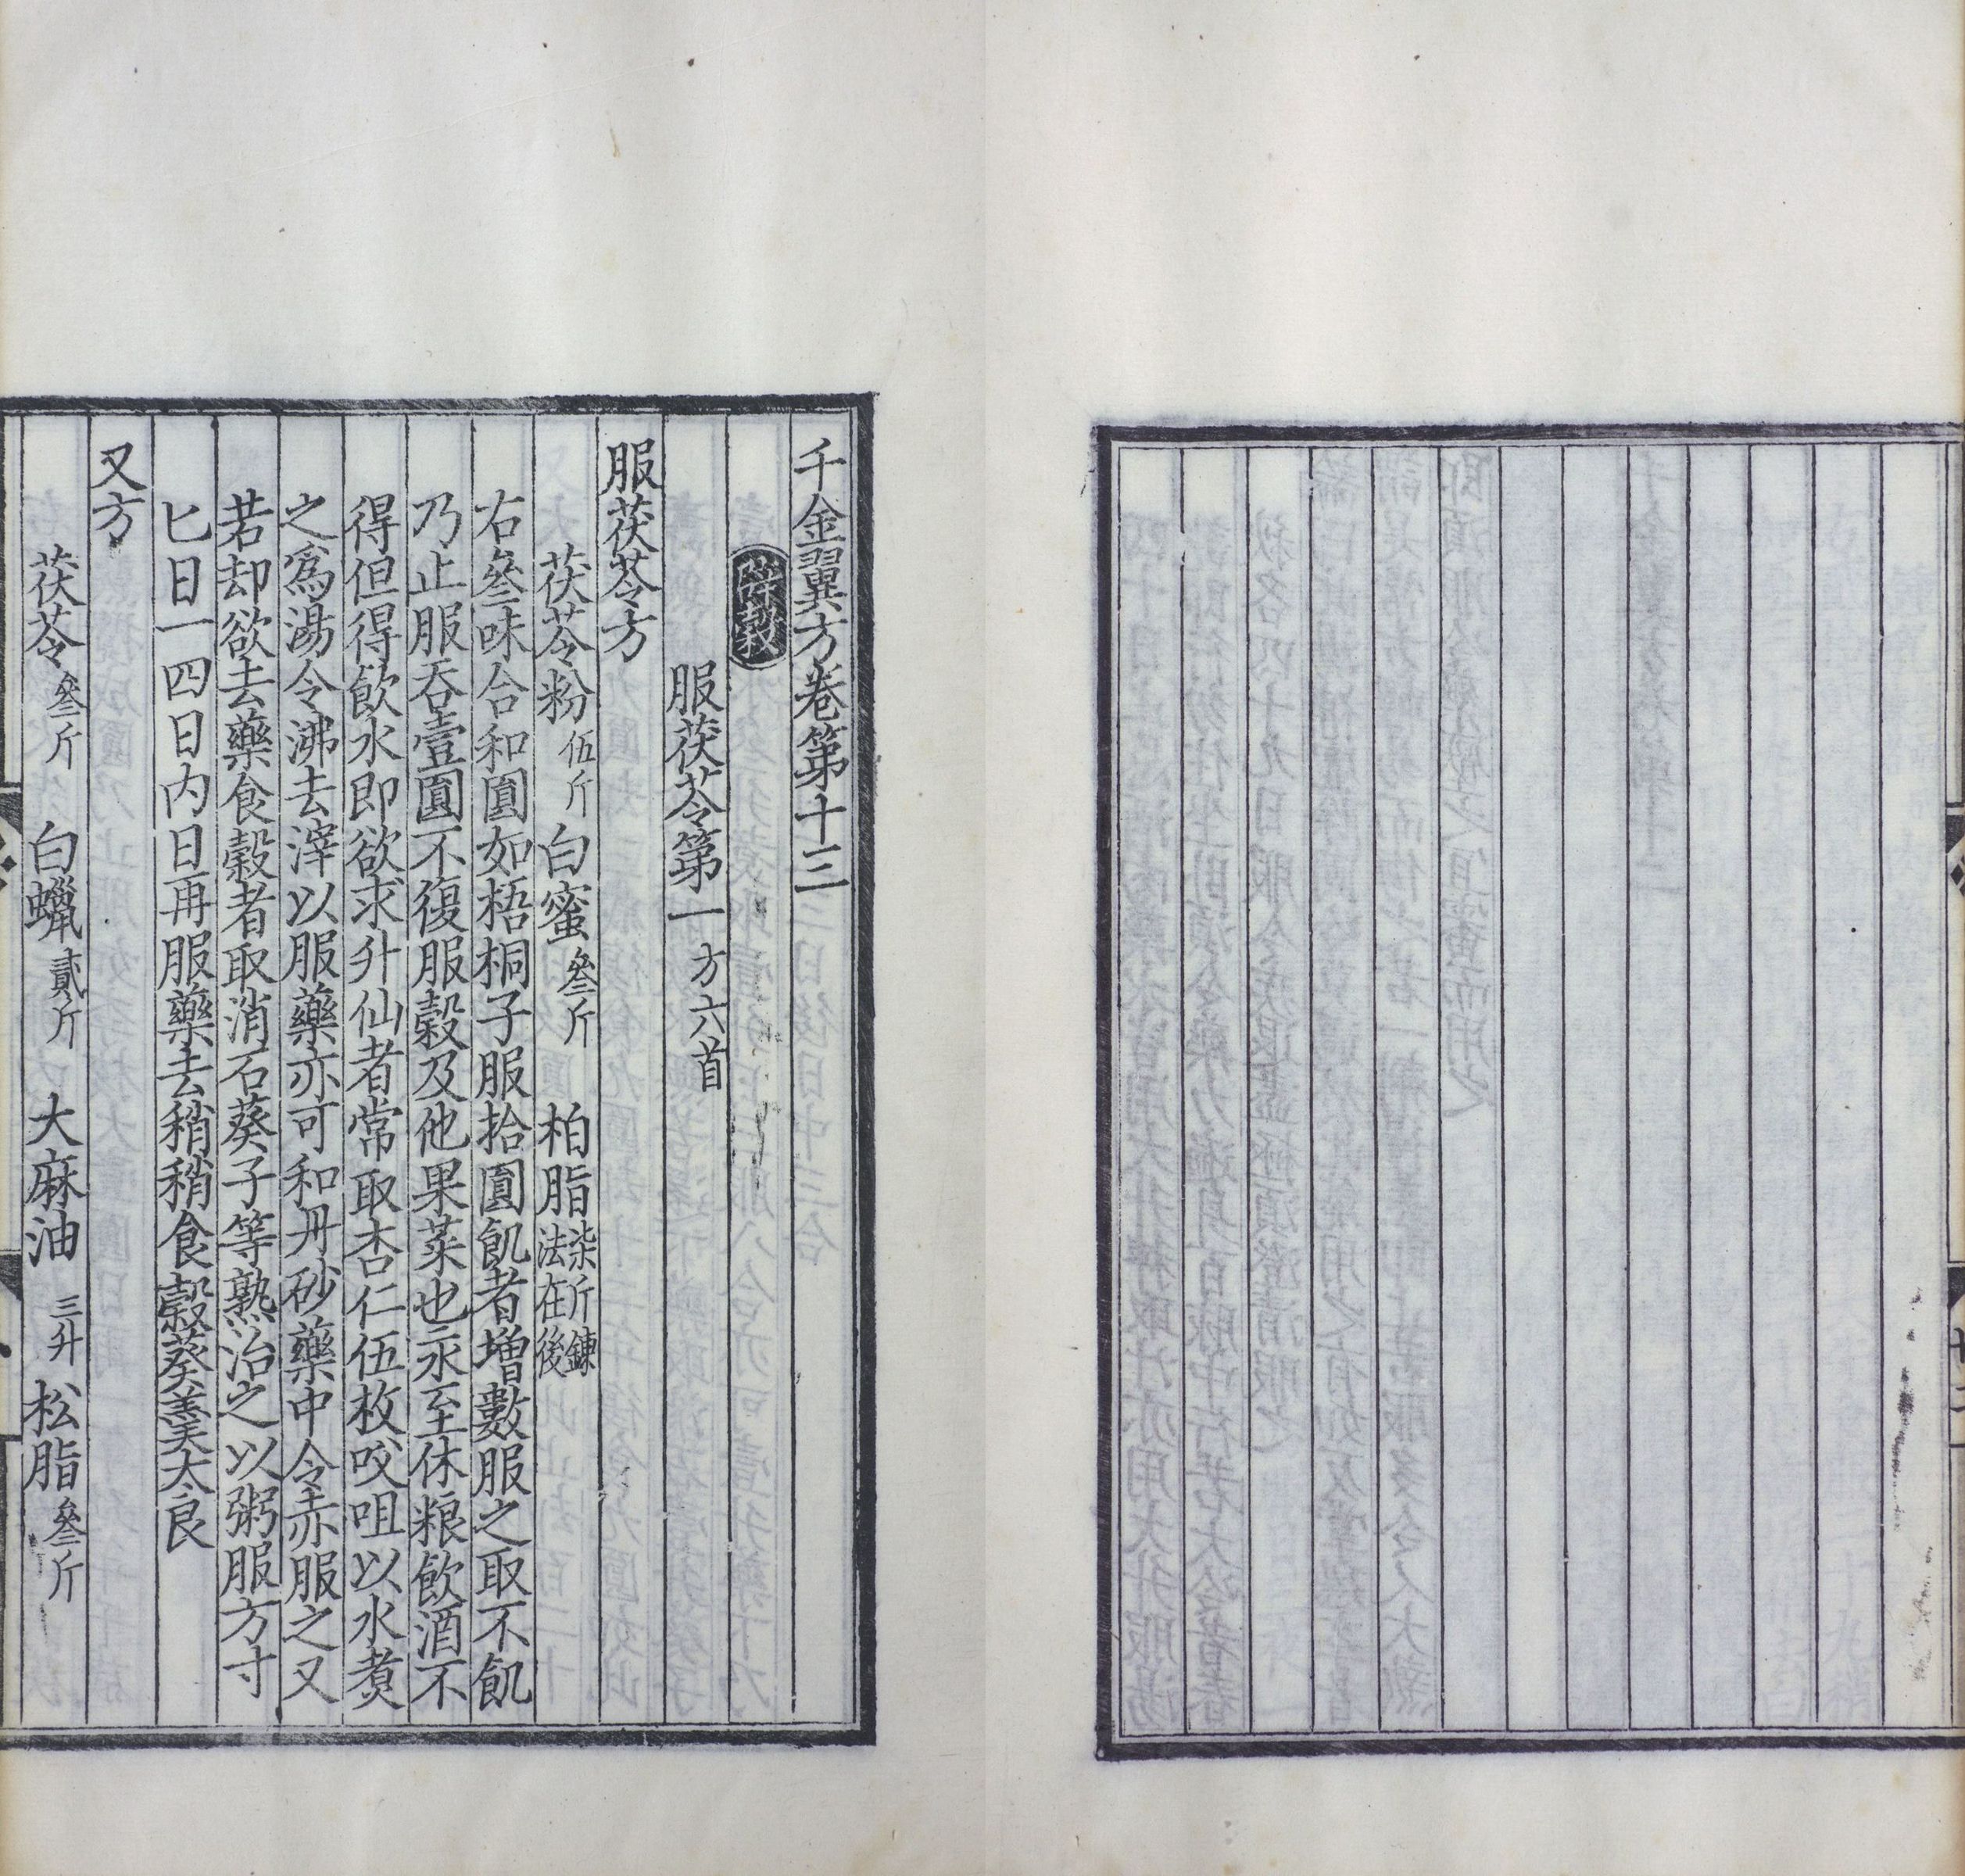 千金翼方卷第十三
辟穀
服茯苓第一 方六首
服茯苓方
茯苓粉 伍斤 白蜜 叁斤 柏脂 柒斤鍊法在後
右叁味合和圓如梧桐子服拾圓飢者增數服之取不飢
乃止服吞壹圓不復服穀及他果菜也永至休粮飲酒不
得但得飲水即欲求升仙者常取杏仁伍枚㕮咀以水煑
之爲湯令沸去滓以服藥亦可和丹砂藥中令赤服之又
若却欲去藥食穀者取消石葵子等熟治之以粥服方寸
匕日一四日內日再服藥去稍稍食穀葵羹大良
又方
茯苓 叁斤 白蠟 貳斤 大麻油 三升 松脂 叁斤